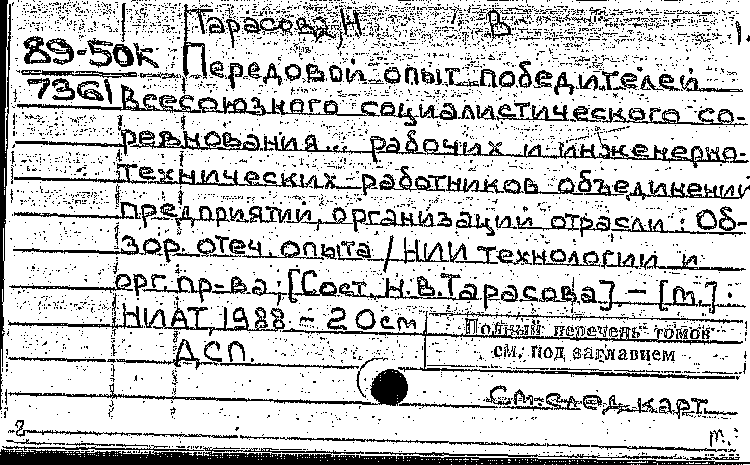 Тарасова, Н В 1.
89-50К
7361
Передовой опыт победителей
Всесоюзного социалистического со-
ревнования... рабочих и инженерно-
технических работников объединений
предприятий, организаций отрасли: Об-
зор. отеч. опыта / НИИ технологии и
орг. пр-ва; [Сост. Н.В.Тарасова]. - [М.]:
НИАТ, 1988. - 20 см
Полный перечень томов
см. под заглавием
ДСП.
См. след. карт.